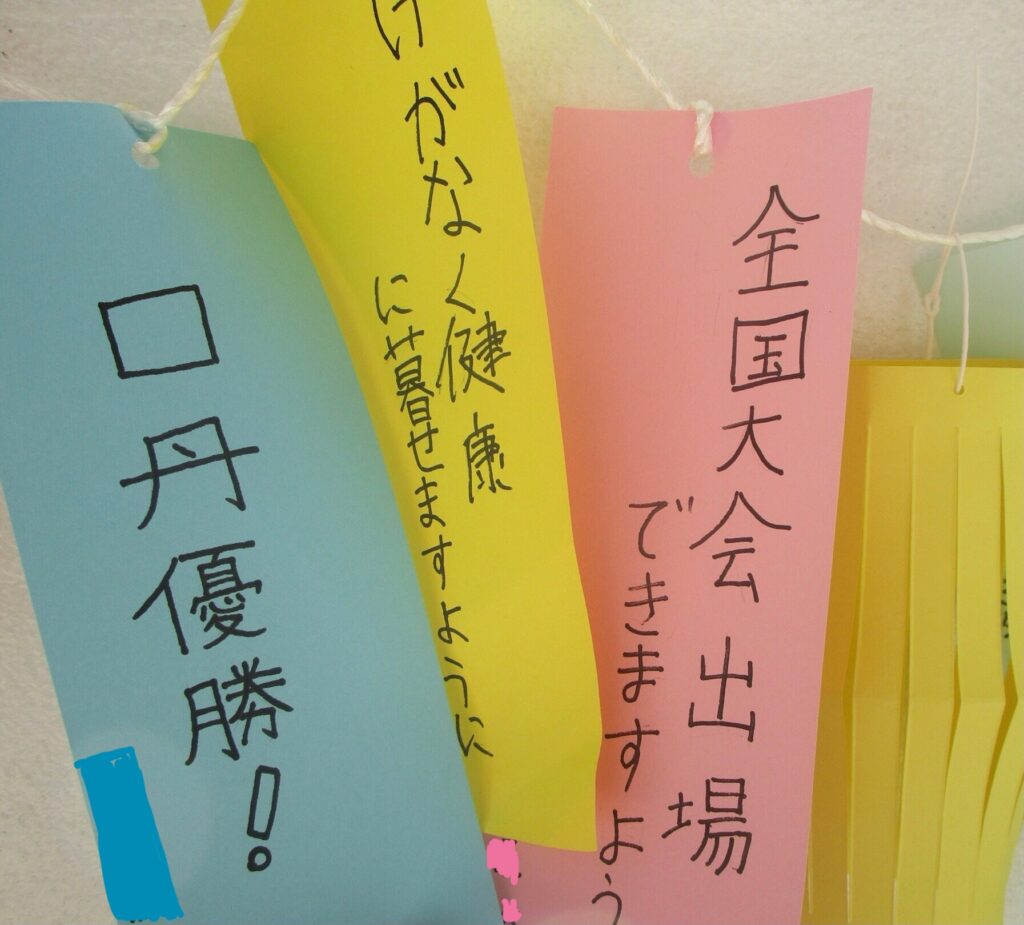 全国大会出場
できますよう
けがなく健康
に暮せますように
口丹優勝！